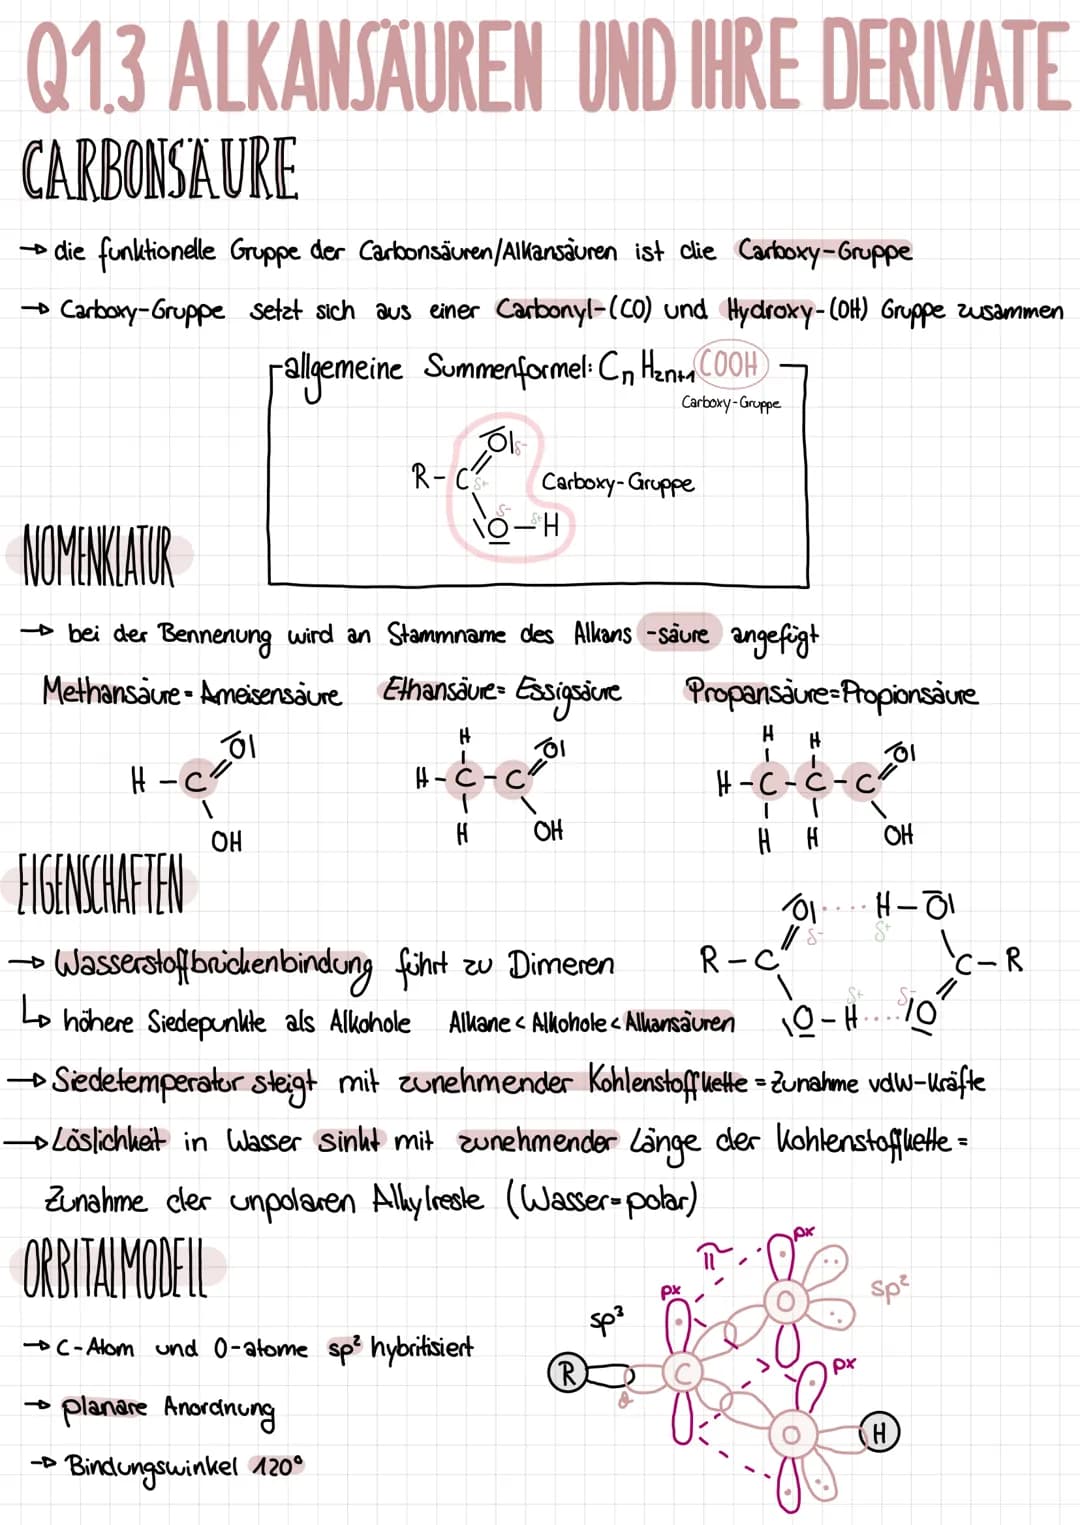 Q1.3 ALKANSÄUREN UND IHRE DERIVATE
CARBONSÄURE
→ die funktionelle Gruppe der Carbonsäuren/Alkansäuren ist die Carboxy-Gruppe
→ Carboxy-Gruppe setzt sich aus einer Carbonyl-(CO) und Hydroxy-(OH) Gruppe zusammen
allgemeine Summenformel: CnH2n+1 COOH
Carboxy-Gruppe
O δ-
R-C δ+ Carboxy-Gruppe
δ- δ+
O-H
NOMENKLATUR
→ bei der Bennenung wird an Stammname des Alkans -säure angefügt
Methansäure = Ameisensäure Ethansäure = Essigsäure Propansäure = Propionsäure
H H H
O O O
H-C H-C-C H-C-C-C
OH H OH H H OH
EIGENSCHAFTEN
O .... H-O
δ- δ+
→ Wasserstoffbrückenbindung führt zu Dimeren R-C C-R
δ+ δ-
↳ höhere Siedepunkte als Alkohole Alkane < Alkohole < Alkansäuren O-H....O
→ Siedetemperatur steigt mit zunehmender Kohlenstoffkette = Zunahme vdW-Kräfte
→ Löslichkeit in Wasser sinkt mit zunehmender Länge der Kohlenstoffkette =
Zunahme der unpolaren Alkylreste (Wasser = polar)
ORBITALMODELL
px
π
px O sp²
sp³
→ C-Atom und O-atome sp² hybritisiert
R C px
→ planare Anordnung
O H
→ Bindungswinkel 120°